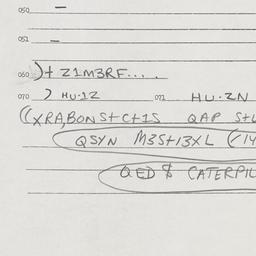 050 –
051 –
060 )+ Z1M3RF....
070 ) HU-1Z 071 HU-ZN
((XRA,BONS+C+1S QAP S+L
QSYN M3S+13XL (/14
QED $ CATERPIL